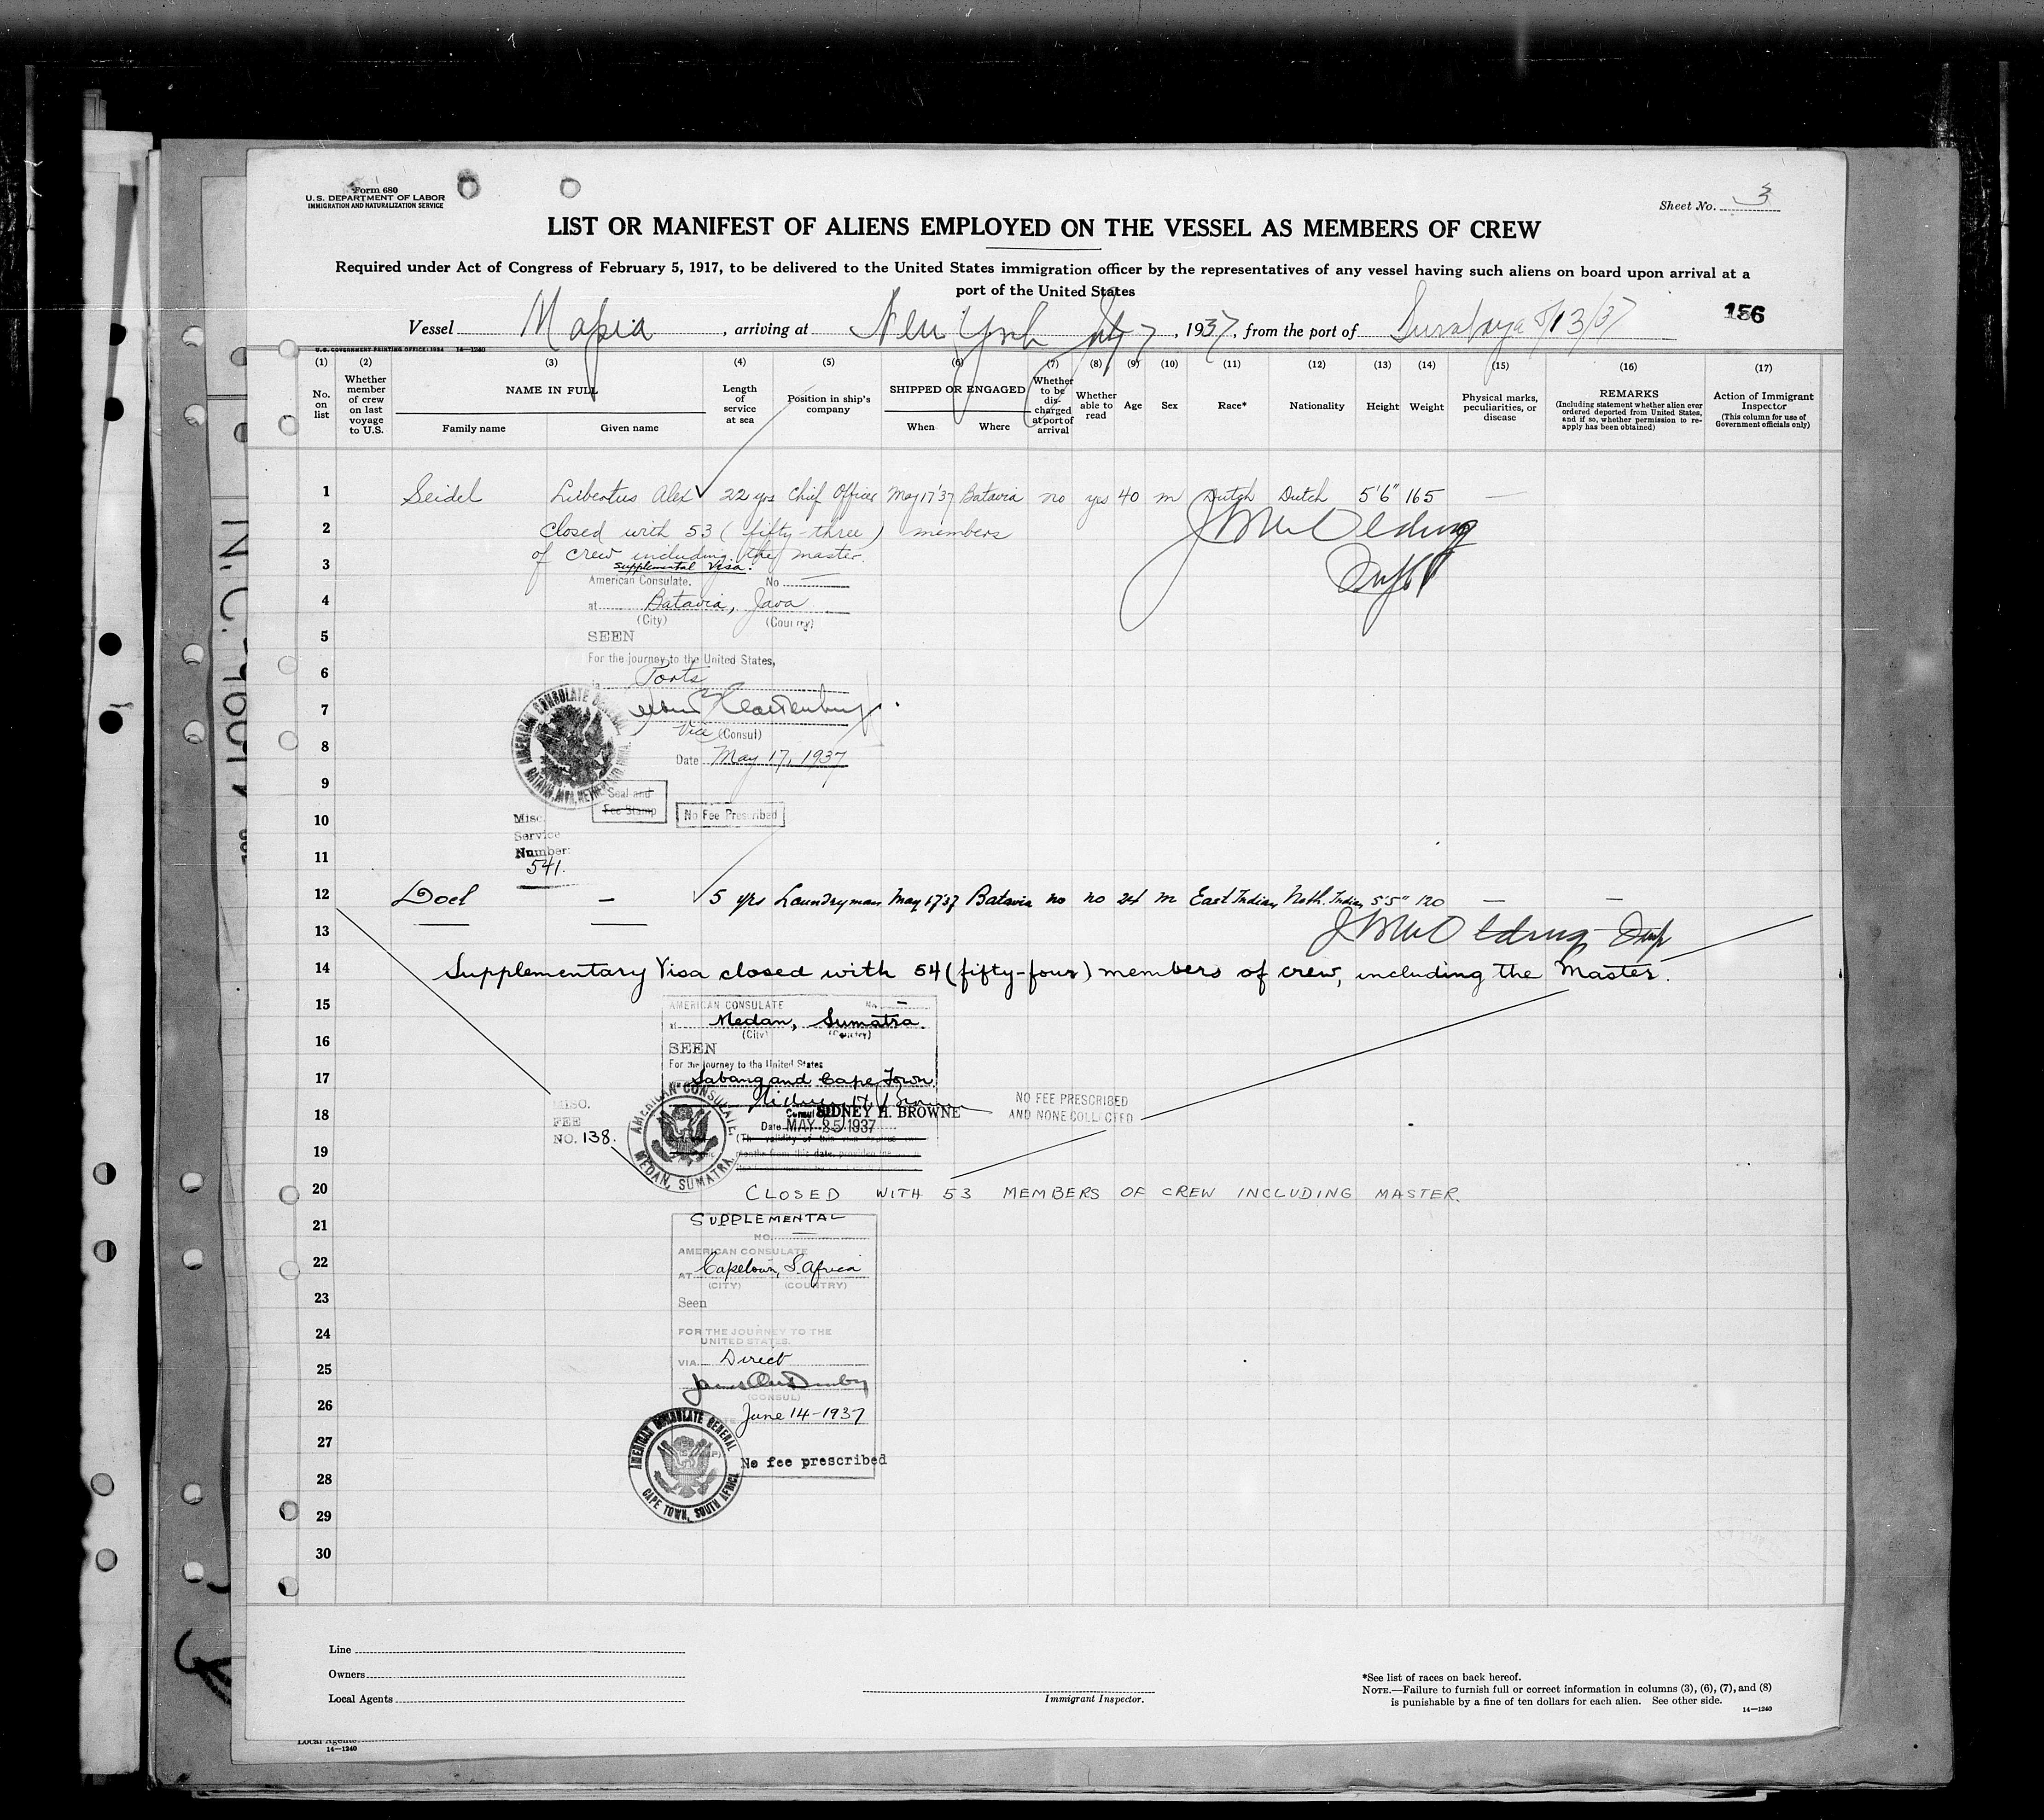 Form 680
U.S. DEPARTMENT OF LABOR
IMMIGRATION AND NATURALIZATION SERVICE
Sheet No. 3
LIST OR MANIFEST OF ALIENS EMPLOYED ON THE VESSEL AS MEMBERS OF CREW
Required under Act of Congress of February 5, 1917, to be delivered to the United States immigration officer by the representatives of any vessel having such aliens on board upon arrival at a
port of the United States
156
Vessel Mapia, arriving at New York July 7, 1937, from the port of Surabaya 5/13/37
U.S. GOVERNMENT PRINTING OFFICE: 1934 14—1240
(1) (2) (3) (4) (5) (6) (7) (8) (9) (10) (11) (12) (13) (14) (15) (16) (17)
No. on list
Whether member of crew on last voyage to U.S.
NAME IN FULL
Family name Given name
Length of service at sea
Position in ship's company
SHIPPED OR ENGAGED
When Where
Whether to be discharged at port of arrival
Whether able to read
Age Sex Race* Nationality Height Weight
Physical marks, peculiarities, or disease
REMARKS
(Including statement whether alien ever ordered deported from United States, and if so, whether permission to re-apply has been obtained)
Action of Immigrant Inspector
(This column for use of Government officials only)
1 Seidel Lubertus Alex 22 yrs Chief Officer May 17'37 Batavia no yes 40 m Dutch Dutch 5'6" 165 —
2 Closed with 53 (fifty-three) members
3 of crew including the master.
Supplemental Visa.
American Consulate. No
4 at Batavia, Java
(City) (Country)
5 SEEN
For the journey to the United States,
6 Ports
7
Vice (Consul)
8 Date May 17, 1937
AMERICAN CONSULATE GENERAL
BATAVIA, JAVA, NETHERLAND INDIA.
9 Seal and
Fee Stamp
No Fee Prescribed
10 Misc.
Service
11 Number:
541.
12 Doel — 5 yrs Laundryman May 17'37 Batavia no no 24 m East Indian Neth. Indian 5'5" 120 — —
13
14 Supplementary Visa closed with 54 (fifty-four) members of crew, including the Master.
15 AMERICAN CONSULATE No. —
at Medan, Sumatra.
(City) (Country)
16 SEEN
For the journey to the United States
17 Sabang and Cape Town
18 Consul SIDNEY H. BROWNE
Date MAY 25 1937
NO FEE PRESCRIBED
AND NONE COLLECTED
MISC.
FEE
NO. 138.
AMERICAN CONSULATE.
MEDAN, SUMATRA.
19
20 CLOSED WITH 53 MEMBERS OF CREW INCLUDING MASTER.
21 SUPPLEMENTAL
NO. —
AMERICAN CONSULATE
22 AT Capetown, S. Africa
(CITY) (COUNTRY)
23 Seen
24 FOR THE JOURNEY TO THE
UNITED STATES.
25 VIA Direct
(CONSUL)
26 June 14-1937
27 No fee prescribed
AMERICAN CONSULATE GENERAL
CAPE TOWN, SOUTH AFRICA
28
29
30
Line
Owners
Local Agents
Immigrant Inspector.
*See list of races on back hereof.
NOTE.—Failure to furnish full or correct information in columns (3), (6), (7), and (8)
is punishable by a fine of ten dollars for each alien. See other side.
14—1240
Local Agents
14—1240